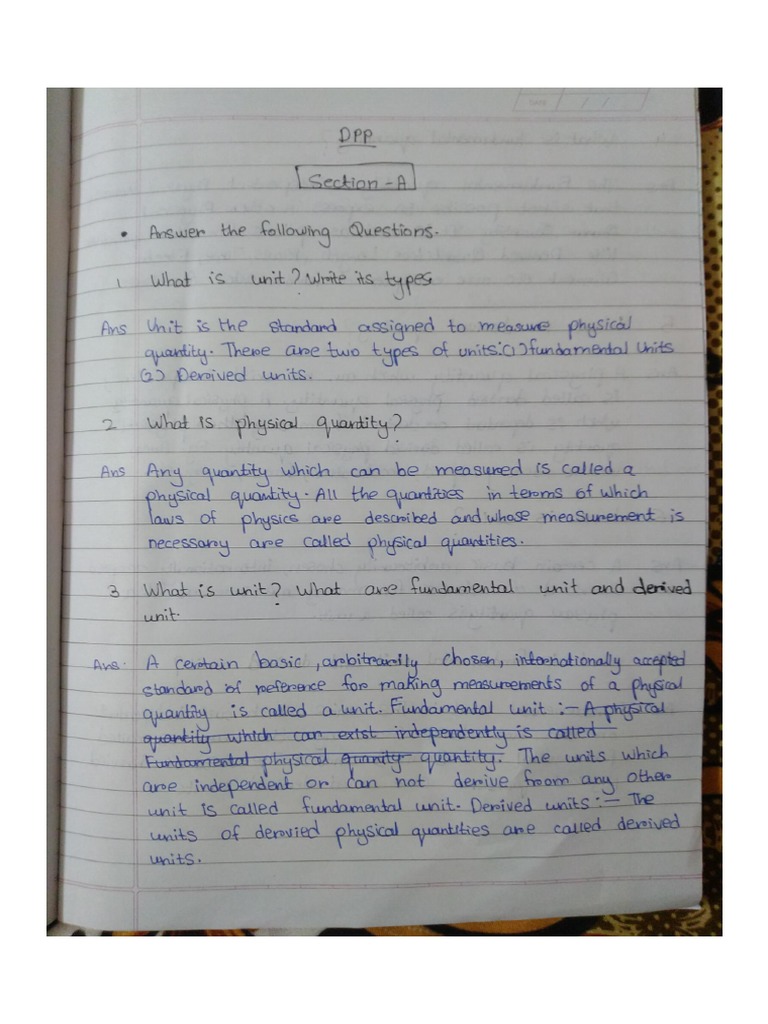 DATE / /
DPP
Section-A
• Answer the following Questions.
1 What is unit? Write its types.
Ans Unit is the standard assigned to measure physical
quantity. There are two types of units:(1) fundamental Units
(2) Derived units.
2 What is physical quantity?
Ans Any quantity which can be measured is called a
physical quantity. All the quantities in terms of which
laws of physics are described and whose measurement is
necessary are called physical quantities.
3 What is unit? What are fundamental unit and derived
unit.
Ans. A certain basic, arbitrarily chosen, internationally accepted
standard of reference for making measurements of a physical
quantity is called a unit. Fundamental unit :- A physical
quantity which can exist independently is called
Fundamental physical quanity quantity. The units which
are independent or can not derive from any other
unit is called fundamental unit. Derived units :- The
units of derovied physical quantities are called derived
units.